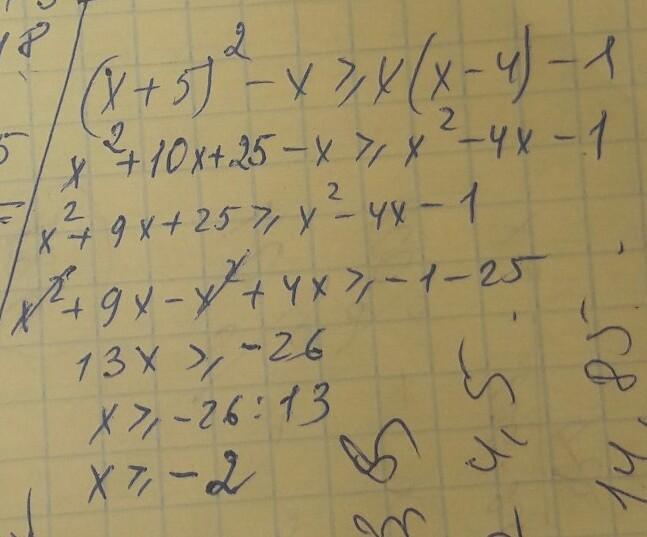 18
5
(x+5)² - x ⩾ x(x-4) - 1
x² + 10x + 25 - x ⩾ x² - 4x - 1
x² + 9x + 25 ⩾ x² - 4x - 1
x² + 9x - x² + 4x ⩾ -1 - 25
13x ⩾ -26
x ⩾ -26 : 13
x ⩾ -2
4,5
14,85